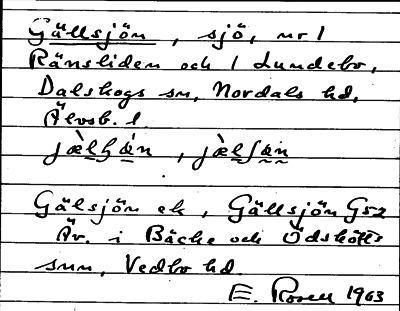 Gällsjön, sjö, nr 1
Ränsliden och 1 Lundebo,
Dalskogs sn, Nordals hd,
Älvsb. l.
Gälsjön ek, Gällsjön G52
Äv. i Bäcke och Ödskölts
snr, Vedbo hd.
E. Rosell 1963